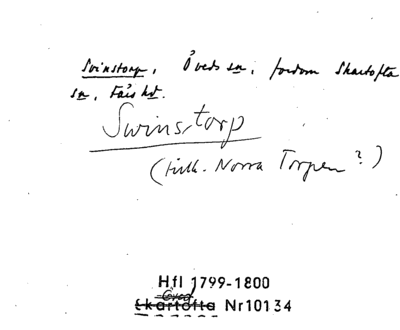 Svinstorp, Öveds sn, fordom Skartofta
sn, Färs hd.
Swinstorp
(tillh. Norra Torpen?)
Hfl 1799-1800
Öved
Skartofta Nr10134